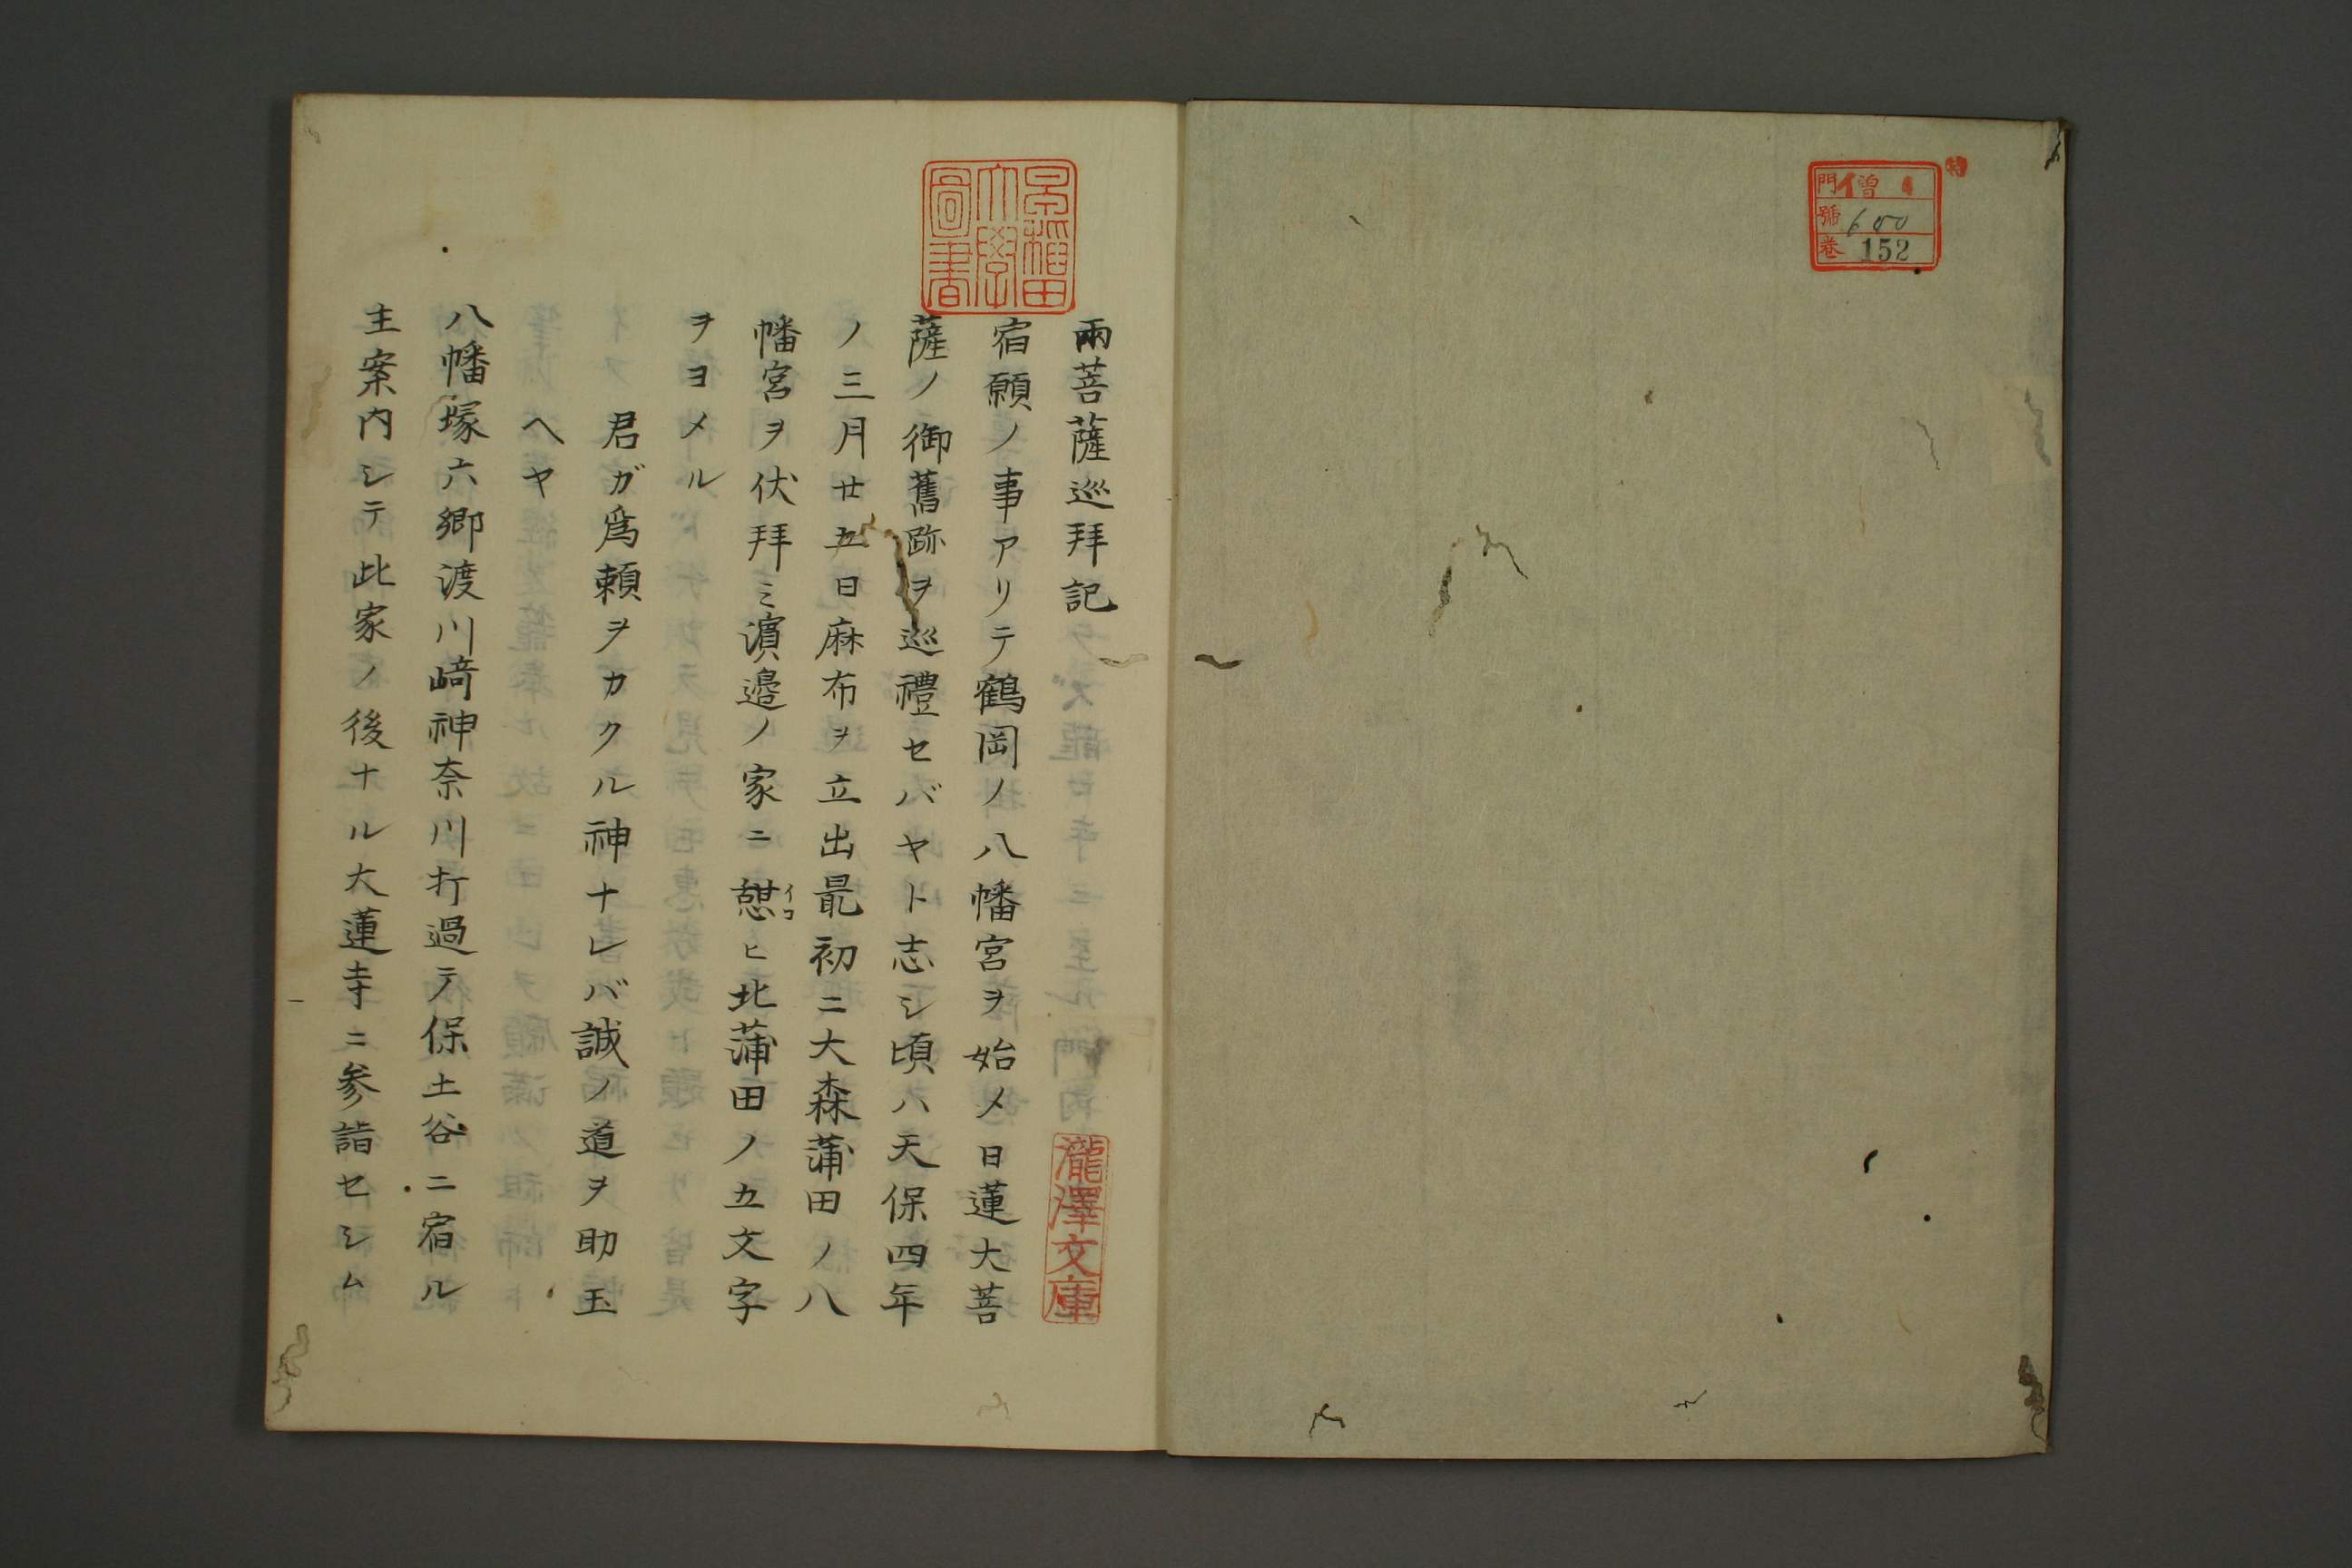 特
門 イ曽 4
號 600
巻 152
早稲田大學圖書
兩菩薩巡拜記
瀧澤文庫
宿願ノ事アリテ鶴岡ノ八幡宮ヲ始メ日蓮大菩
薩ノ御舊跡ヲ巡禮セバヤト志シ頃ハ天保四年
ノ三月廿五日麻布ヲ立出最初ニ大森蒲田ノ八
幡宮ヲ伏拜ミ濵邉ノ家ニ憇ヒ北蒲田ノ五文字
イコ
ヲヨメル
君ガ爲頼ヲカクル神ナレバ誠ノ道ヲ助玉
ヘヤ
八幡塚六郷渡川﨑神奈川打過テ保土谷ニ宿ル
主案内シテ此家ノ後ナル大蓮寺ニ参詣セシム